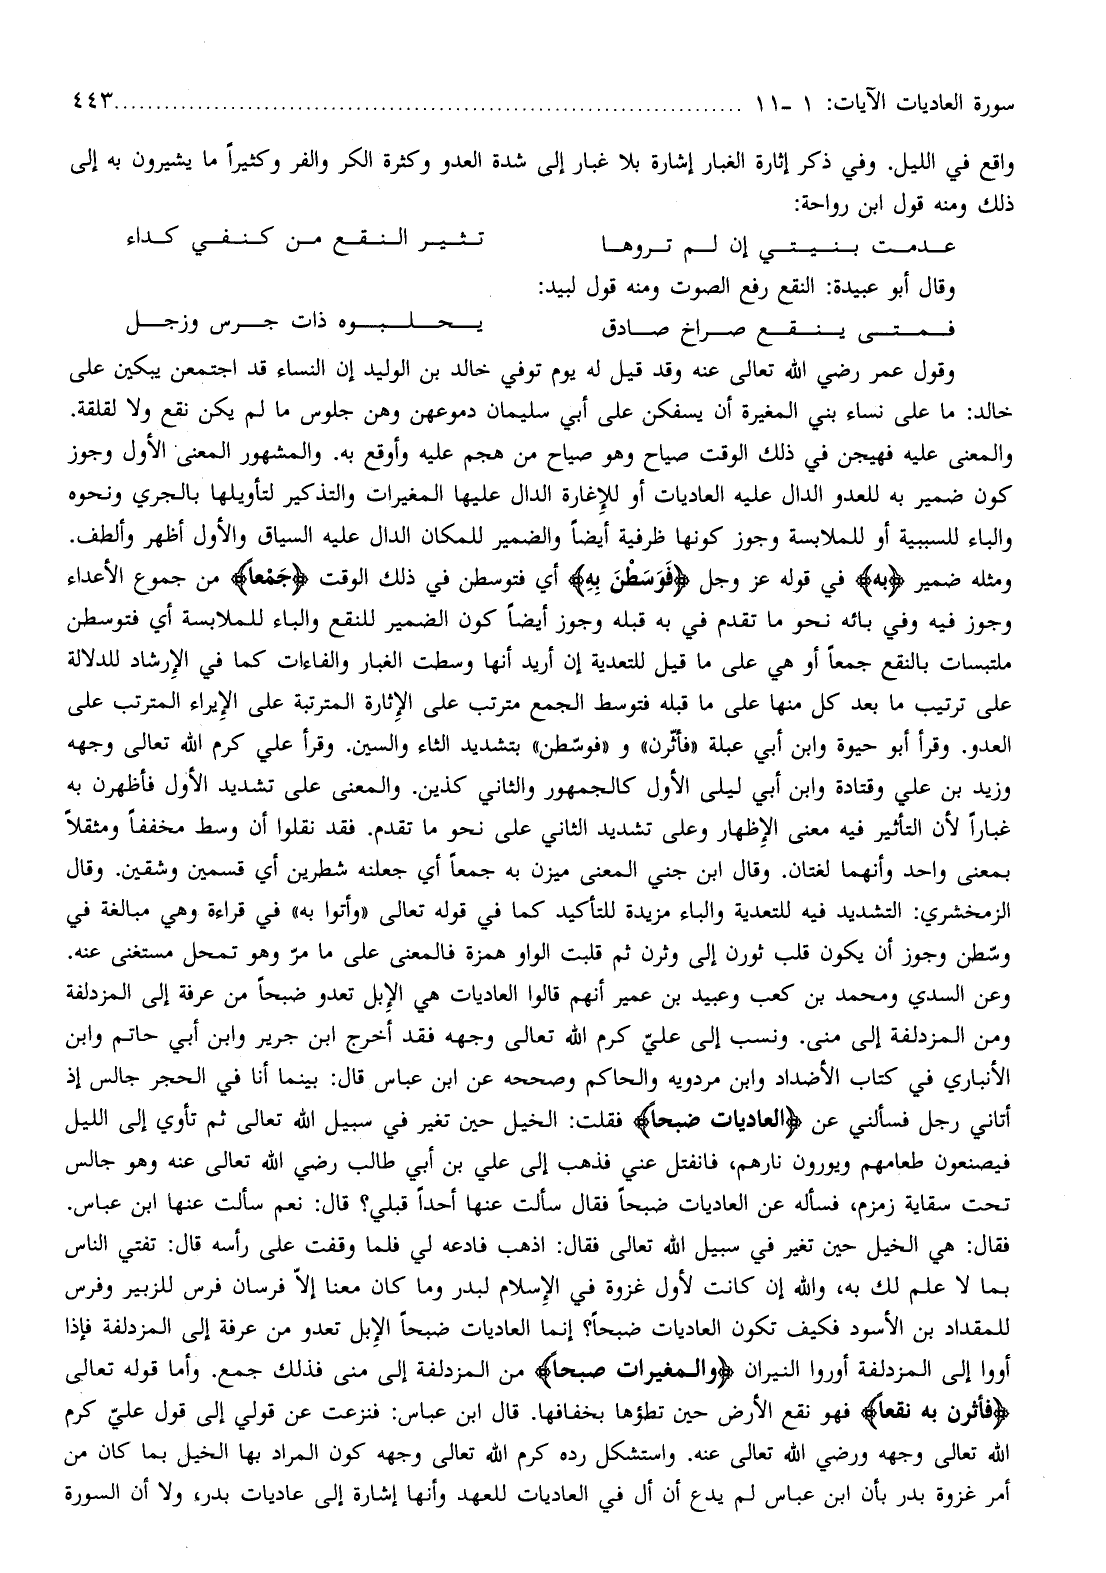 سورة العاديات الآيات: ١ -١١ ........................................................................................٤٤٣
واقع في الليل. وفي ذكر إثارة الغبار إشارة بلا غبار إلى شدة العدو وكثرة الكر والفر وكثيراً ما يشيرون به إلى
ذلك ومنه قول ابن رواحة:
عدمت بنيتي إن لم تروها تثير النقع من كنفي كداء
وقال أبو عبيدة: النقع رفع الصوت ومنه قول لبيد:
فمتى ينقع صراخ صادق يحلبوه ذات جرس وزجل
وقول عمر رضي الله تعالى عنه وقد قيل له يوم توفي خالد بن الوليد إن النساء قد اجتمعن يبكين على
خالد: ما على نساء بني المغيرة أن يسفكن على أبي سليمان دموعهن وهن جلوس ما لم يكن نقع ولا لقلقة.
والمعنى عليه فهيجن في ذلك الوقت صياح وهو صياح من هجم عليه وأوقع به. والمشهور المعنى الأول وجوز
كون ضمير به للعدو الدال عليه العاديات أو للإغارة الدال عليها المغيرات والتذكير لتأويلها بالجري ونحوه
والباء للسببية أو للملابسة وجوز كونها ظرفية أيضاً والضمير للمكان الدال عليه السياق والأول أظهر وألطف.
ومثله ضمير ﴿به﴾ في قوله عز وجل ﴿فَوَسَطْنَ بِهِ﴾ أي فتوسطن في ذلك الوقت ﴿جَمْعاً﴾ من جموع الأعداء
وجوز فيه وفي بائه نحو ما تقدم في به قبله وجوز أيضاً كون الضمير للنقع والباء للملابسة أي فتوسطن
ملتبسات بالنقع جمعاً أو هي على ما قيل للتعدية إن أريد أنها وسطت الغبار والفاءات كما في الإرشاد للدلالة
على ترتيب ما بعد كل منها على ما قبله فتوسط الجمع مترتب على الإثارة المترتبة على الإيراء المترتب على
العدو. وقرأ أبو حيوة وابن أبي عبلة «فأثّرن» و «فوسّطن» بتشديد الثاء والسين. وقرأ علي كرم الله تعالى وجهه
وزيد بن علي وقتادة وابن أبي ليلى الأول كالجمهور والثاني كذين. والمعنى على تشديد الأول فأظهرن به
غباراً لأن التأثير فيه معنى الإظهار وعلى تشديد الثاني على نحو ما تقدم. فقد نقلوا أن وسط مخففاً ومثقلاً
بمعنى واحد وأنهما لغتان. وقال ابن جني المعنى ميزن به جمعاً أي جعلنه شطرين أي قسمين وشقين. وقال
الزمخشري: التشديد فيه للتعدية والباء مزيدة للتأكيد كما في قوله تعالى «وأتوا به» في قراءة وهي مبالغة في
وسّطن وجوز أن يكون قلب ثورن إلى وثرن ثم قلبت الواو همزة فالمعنى على ما مرّ وهو تمحل مستغنى عنه.
وعن السدي ومحمد بن كعب وعبيد بن عمير أنهم قالوا العاديات هي الإبل تعدو ضبحاً من عرفة إلى المزدلفة
ومن المزدلفة إلى منى. ونسب إلى عليّ كرم الله تعالى وجهه فقد أخرج ابن جرير وابن أبي حاتم وابن
الأنباري في كتاب الأضداد وابن مردويه والحاكم وصححه عن ابن عباس قال: بينما أنا في الحجر جالس إذ
أتاني رجل فسألني عن ﴿العاديات ضبحاً﴾ فقلت: الخيل حين تغير في سبيل الله تعالى ثم تأوي إلى الليل
فيصنعون طعامهم ويورون نارهم، فانفتل عني فذهب إلى علي بن أبي طالب رضي الله تعالى عنه وهو جالس
تحت سقاية زمزم، فسأله عن العاديات ضبحاً فقال سألت عنها أحداً قبلي؟ قال: نعم سألت عنها ابن عباس.
فقال: هي الخيل حين تغير في سبيل الله تعالى فقال: اذهب فادعه لي فلما وقفت على رأسه قال: تفتي الناس
بما لا علم لك به، والله إن كانت لأول غزوة في الإسلام لبدر وما كان معنا إلاّ فرسان فرس للزبير وفرس
للمقداد بن الأسود فكيف تكون العاديات ضبحاً؟ إنما العاديات ضبحاً الإبل تعدو من عرفة إلى المزدلفة فإذا
أووا إلى المزدلفة أوروا النيران ﴿والمغيرات صبحاً﴾ من المزدلفة إلى منى فذلك جمع. وأما قوله تعالى
﴿فأثرن به نقعاً﴾ فهو نقع الأرض حين تطؤها بخفافها. قال ابن عباس: فنزعت عن قولي إلى قول عليّ كرم
الله تعالى وجهه ورضي الله تعالى عنه. واستشكل رده كرم الله تعالى وجهه كون المراد بها الخيل بما كان من
أمر غزوة بدر بأن ابن عباس لم يدع أن أل في العاديات للعهد وأنها إشارة إلى عاديات بدر، ولا أن السورة